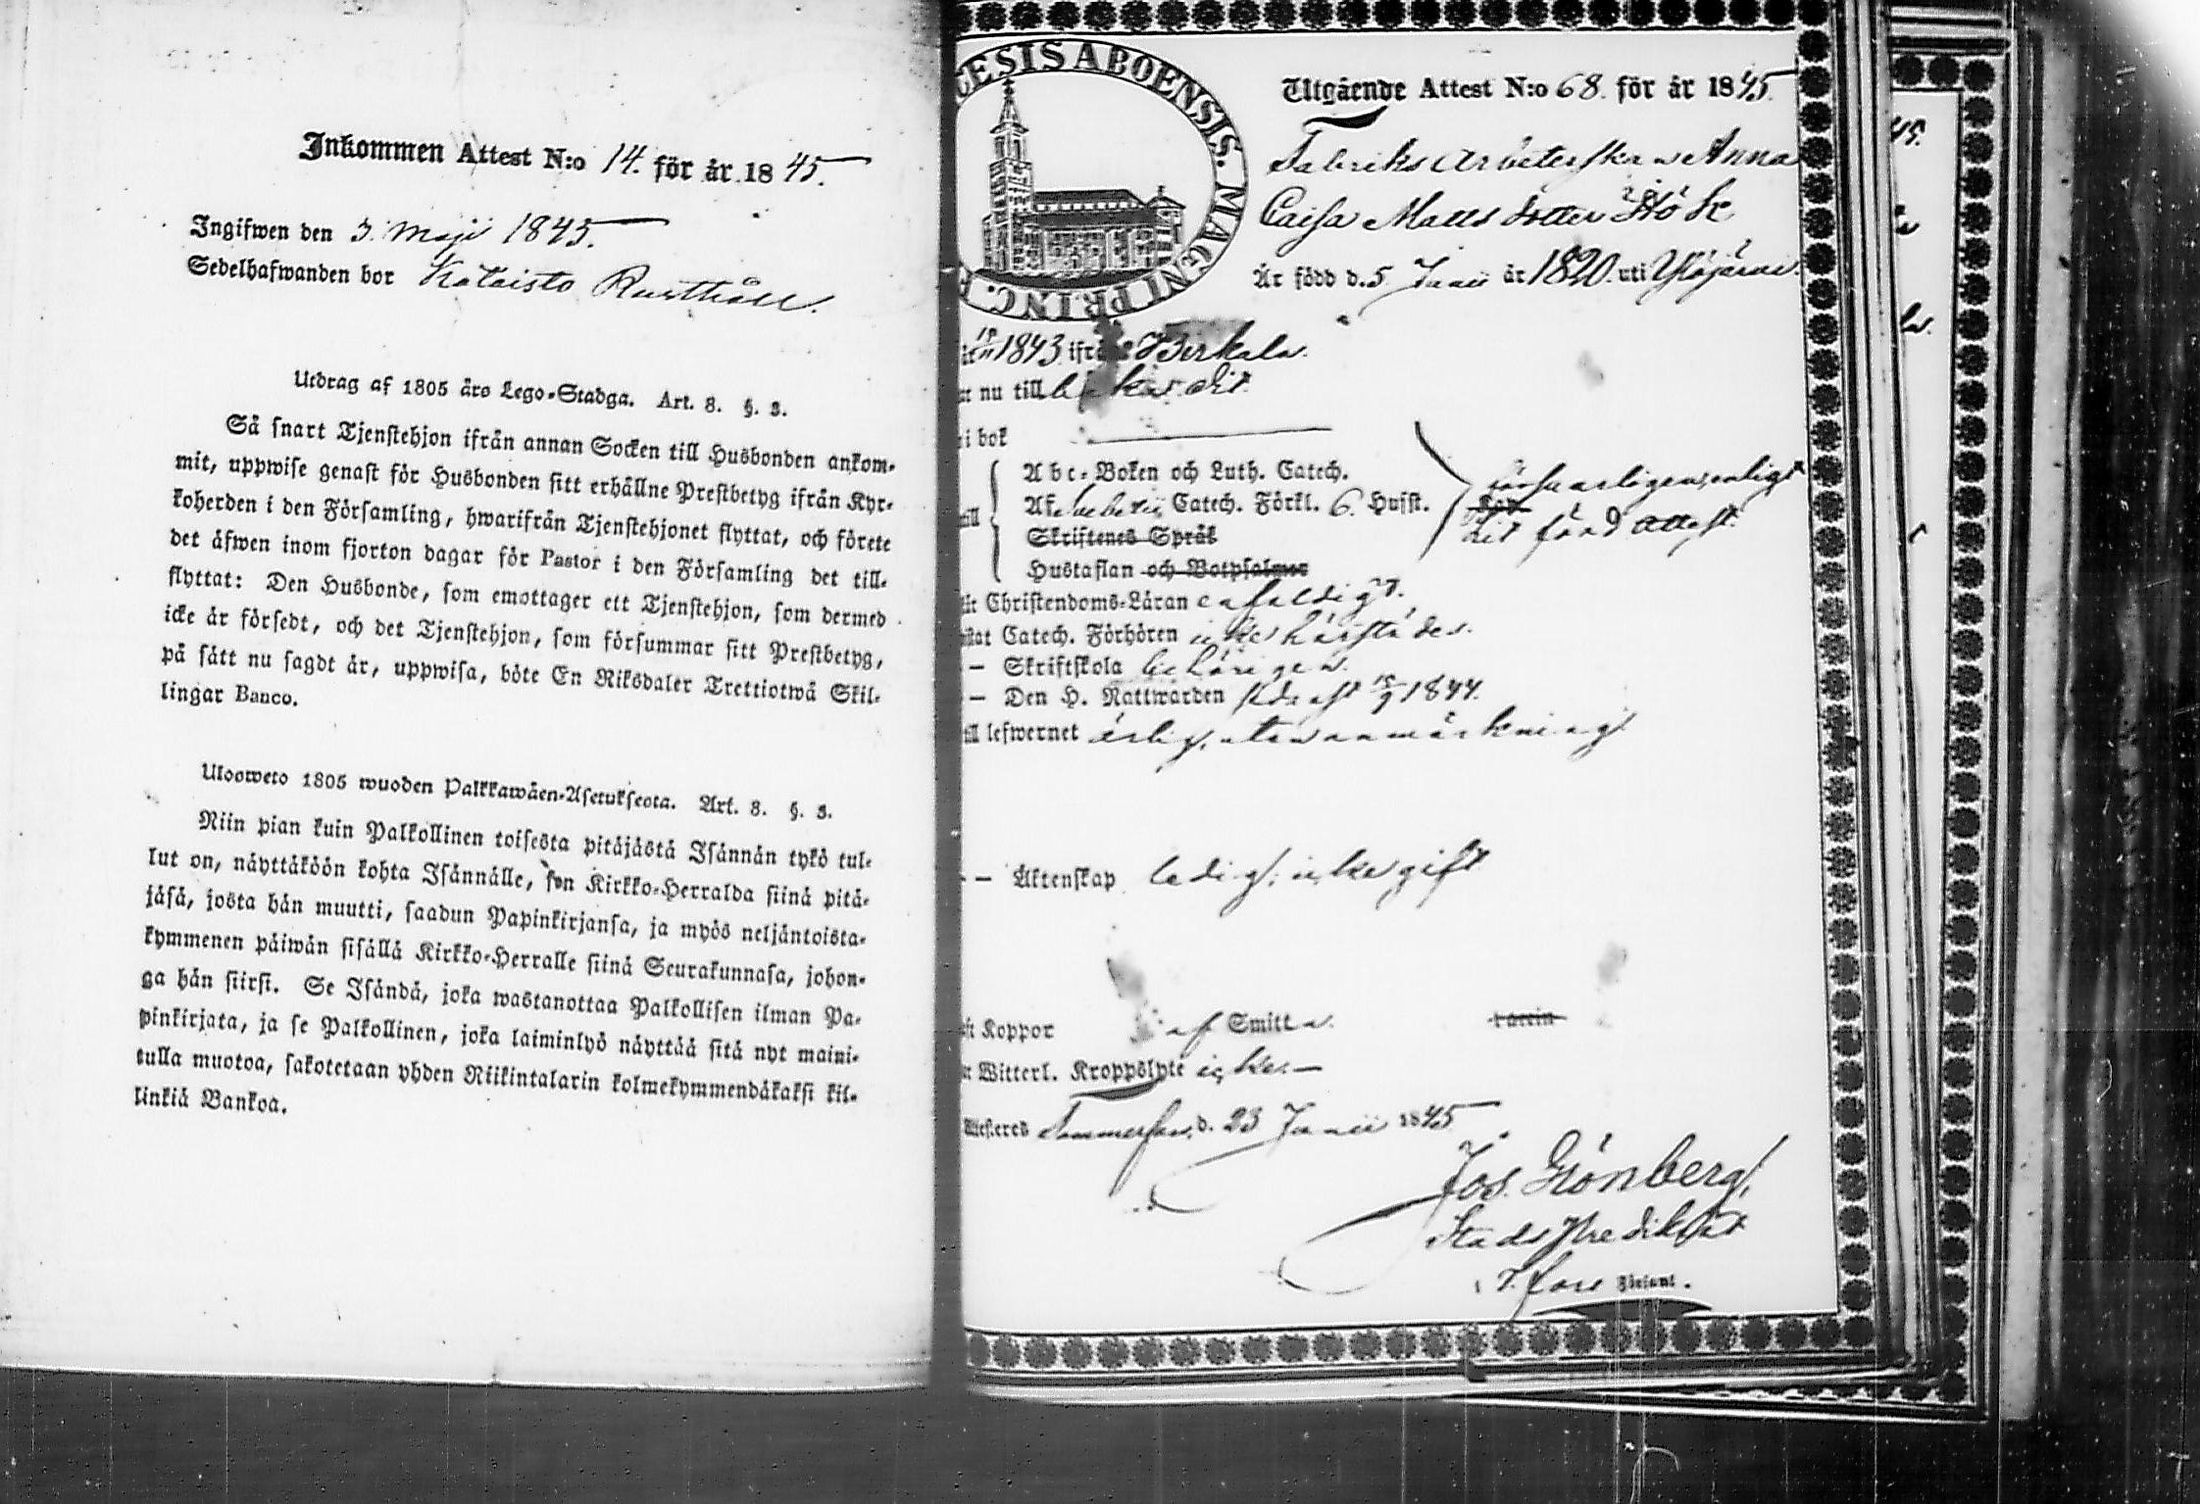 Inkommen Attest N:o 14. för år 1845.
Ingifwen den 3. Maji 1845.
Sedelhafwanden bor Kataisto Rusthåll.
Utdrag af 1805 års Lego-Stadga. Art. 8. §. 3.
Så snart Tjenstehjon ifrån annan Socken till Husbonden ankom-
mit, uppwise genast för Husbonden sitt erhållne Prestbetyg ifrån Kyr-
koherden i den Församling, hwarifrån Tjenstehjonet flyttat, och förete
det äfwen inom fjorton dagar för Pastor i den Församling det till-
flyttat: Den Husbonde, som emottager ett Tjenstehjon, som dermed
icke är försedt, och det Tjenstehjon, som försummar sitt Prestbetyg,
på sätt nu sagdt är, uppwisa, böte En Riksdaler Trettiotwå Skil-
lingar Banco.
Ulosweto 1805 wuoden Palkkawäen-Asetuksesta. Art. 8. §. 3.
Niin pian kuin Palkollinen toisesta pitäjästä Isännän tykö tul-
lut on, näyttäköön kohta Isännälle, sen Kirkko-Herralda siinä pitä-
jäsä, josta hän muutti, saadun Papinkirjansa, ja myös neljäntoista-
kymmenen päiwän sisällä Kirkko-Herralle siinä Seurakunnasa, johon-
ga hän siirsi. Se Isändä, joka wastanottaa Palkollisen ilman Pa-
pinkirjata, ja se Palkollinen, joka laiminlyö näyttää sitä nyt maini-
tulla muotoa, sakotetaan yhden Riikintalarin kolmekymmendäkaksi kil-
linkiä Bankoa.
CESIS ABOENSIS. MAGNI PRINC. F
Utgående Attest N:o 68. för år 1845
Fabriks arbeterskan Anna
Caisa Matts dotter Höök
Är född d. 5 Junii år 1820. uti Ylöjärvi.
1843 ifrån Birkala.
nu till bakas dit
i bok
Abc-Boken och Luth. Catech.
Af Svebelii Catech. Förkl. 6. Hufst.
Skriftenes Språk
Hustaflan och Botpsalmer
försvarligen, enligt
hit förd attest.
Christendoms-Läran enfaldigt.
Catech. Förhören icke härstädes.
– Skriftskola behörigen.
– Den H. Nattwarden sednast 15/9 1844.
till lefwernet ärlig, utan anmärkning
– Äktenskap ledig; icke gift
Koppor af Smitta.
Witterl. Kroppslyte icke. –
Attesteres Tammerfors, d. 23 Junii 1845
Jos. Grönberg,
Stads Predikant
T. fors Församl.